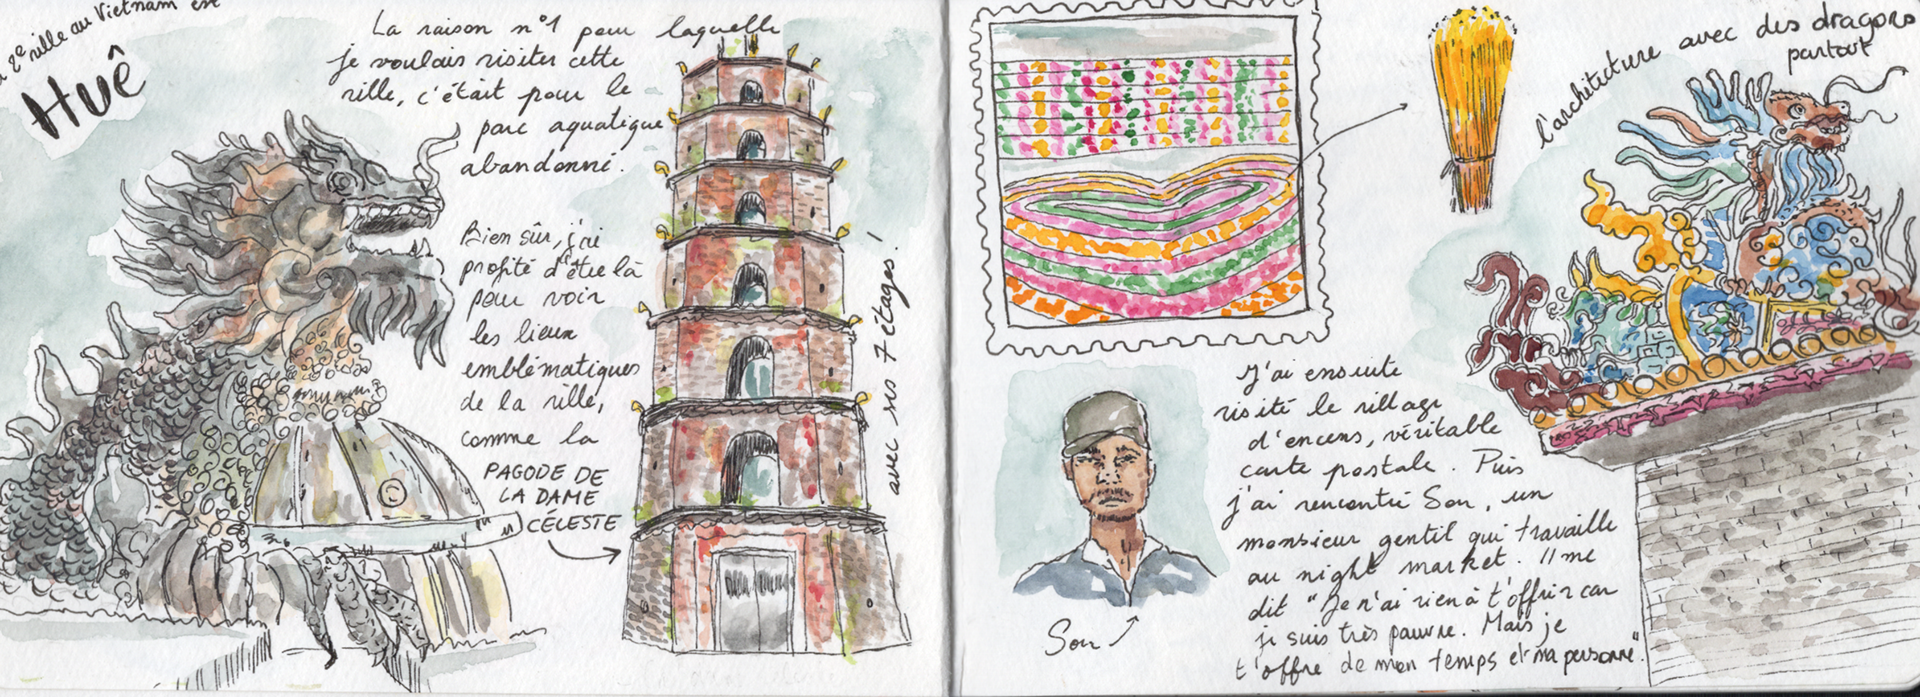 2e ville au Vietnam est
Huê
La raison n°1 pour laquelle
je voulais visiter cette
ville, c'était pour le
parc aquatique
abandonné.
Bien sûr, j'ai
profité d'être là
pour voir
les lieux
emblématiques
de la ville,
comme la
PAGODE DE
LA DAME
CÉLESTE
avec ses 7 étages!
l'architecture avec des dragons
partout
J'ai ensuite
visité le village
d'encens, véritable
carte postale. Puis
j'ai rencontré Son, un
monsieur gentil qui travaille
au night market. Il me
dit "Je n'ai rien à t'offrir car
je suis très pauvre. Mais je
t'offre de mon temps et ma personne."
Son